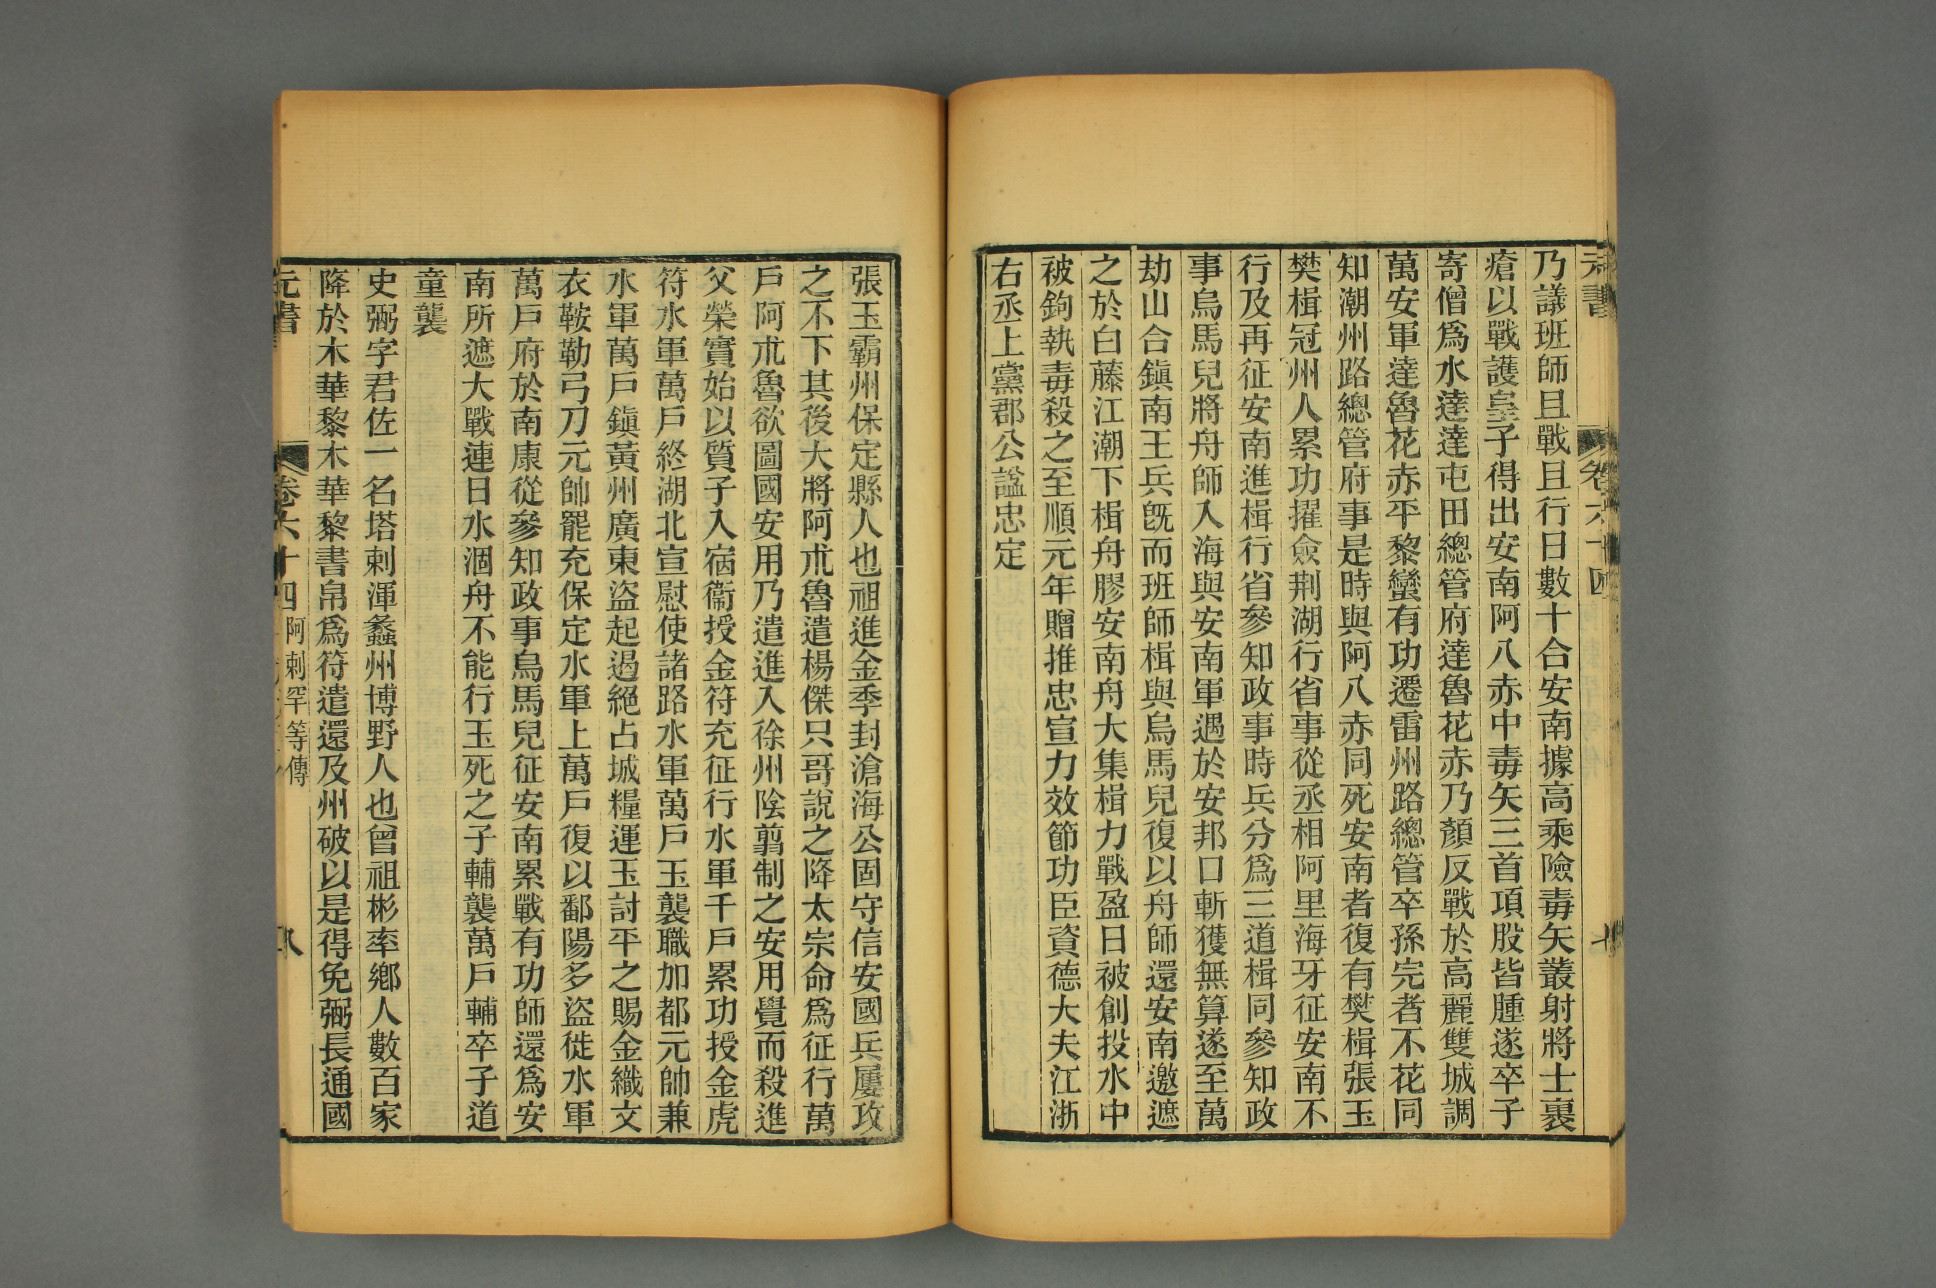 元書
卷六十四
乃議班師且戰且行日數十合安南據高乘險毒矢叢射將士裹
瘡以戰護皇子得出安南阿八赤中毒矢三首項股皆腫遂卒子
寄僧爲水達達屯田總管府達魯花赤乃顏反戰於高麗雙城調
萬安軍達魯花赤平黎蠻有功遷雷州路總管卒孫完者不花同
知潮州路總管府事是時與阿八赤同死安南者復有樊楫張玉
樊楫冠州人累功擢僉荆湖行省事從丞相阿里海牙征安南不
行及再征安南進楫行省參知政事時兵分爲三道楫同參知政
事烏馬兒將舟師入海與安南軍遇於安邦口斬獲無算遂至萬
劫山合鎭南王兵旣而班師楫與烏馬兒復以舟師還安南邀遮
之於白藤江潮下楫舟膠安南舟大集楫力戰盈日被創投水中
被鉤執毒殺之至順元年贈推忠宣力效節功臣資德大夫江浙
右丞上黨郡公諡忠定
張玉霸州保定縣人也祖進金季封滄海公固守信安國兵屢攻
之不下其後大將阿朮魯遣楊傑只哥說之降太宗命爲征行萬
戶阿朮魯欲圖國安用乃遣進入徐州陰翦制之安用覺而殺進
父榮實始以質子入宿衞授金符充征行水軍千戶累功授金虎
符水軍萬戶終湖北宣慰使諸路水軍萬戶玉襲職加都元帥兼
水軍萬戶鎭黃州廣東盜起遏絕占城糧運玉討平之賜金織文
衣鞍勒弓刀元帥罷充保定水軍上萬戶復以鄱陽多盜徙水軍
萬戶府於南康從參知政事烏馬兒征安南累戰有功師還爲安
南所遮大戰連日水涸舟不能行玉死之子輔襲萬戶輔卒子道
童襲
史弼字君佐一名塔剌渾蠡州博野人也曾祖彬率鄉人數百家
降於木華黎木華黎書帛爲符遣還及州破以是得免弼長通國
元書
卷六十四
阿剌罕等傳
八